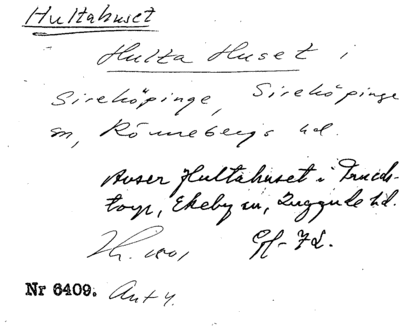 Hultahuset
Hulta Huset i
Sireköpinge, Sireköpinge
sn, Rönnebergs hd.
Avser Hultahuset i Trueds-
torp, Ekeby sn, Luggude hd.
Gf-Jd.
Nr 6409. Ant 4.